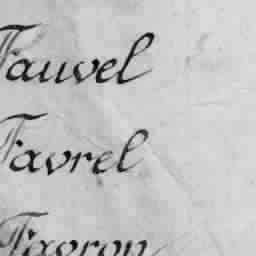 Fauvel
Favrel
Favron